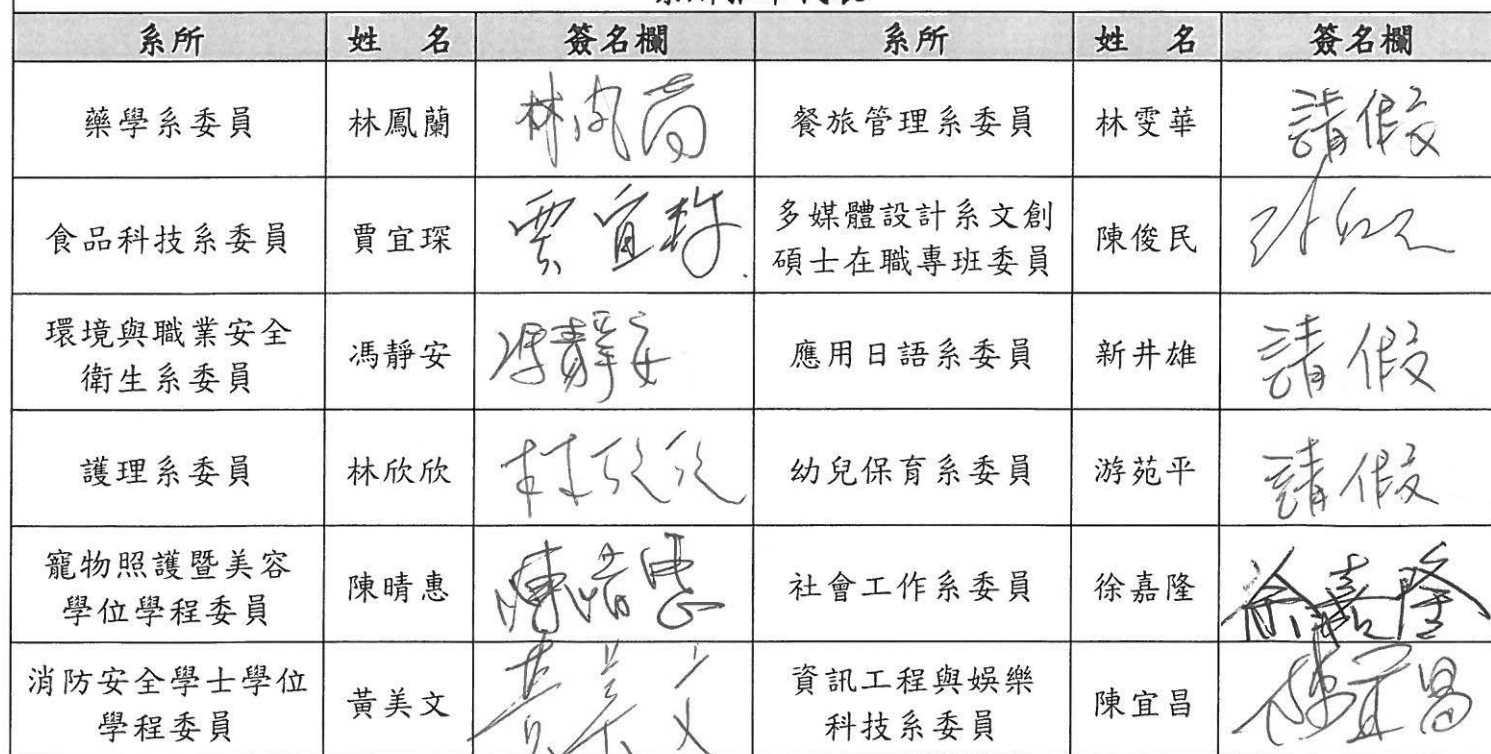 系所 姓 名 簽名欄 系所 姓 名 簽名欄
藥學系委員 林鳳蘭 餐旅管理系委員 林雯華 請假
食品科技系委員 賈宜琛 賈宜琛 多媒體設計系文創
碩士在職專班委員 陳俊民
環境與職業安全
衛生系委員 馮靜安 馮靜安 應用日語系委員 新井雄 請假
護理系委員 林欣欣 林欣欣 幼兒保育系委員 游苑平 請假
寵物照護暨美容
學位學程委員 陳晴惠 陳晴惠 社會工作系委員 徐嘉隆 徐嘉隆
消防安全學士學位
學程委員 黃美文 黃美文 資訊工程與娛樂
科技系委員 陳宜昌 陳宜昌